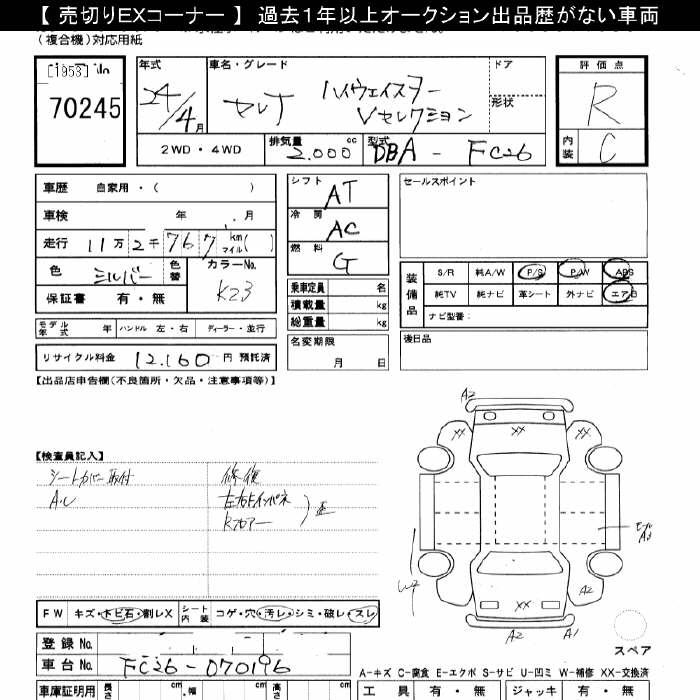 【 売切りEXコーナー 】 過去1年以上オークション出品歴がない車両
(複合機)対応用紙
70245
年式
24/4月
車名・グレード
セレナ
ハイウェイスター
Vセレクション
ドア
形状
評価点
R
内装
C
2WD・4WD
排気量
2.000 cc
型式
DBA - FC26
車歴 自家用・( )
車検 年 . 月
走行 11万2千767 km マイル( )
色
シルバー
色替
カラーNo.
K23
保証書 有・無
モデル年式 年 ハンドル 左・右 ディーラー・並行
リサイクル料金 12.160 円 預託済
シフト
AT
冷房
AC
燃料
G
乗車定員 名
積載量 kg
総重量 kg
名変期限
月 日
セールスポイント
装備品
S/R 純A/W P/S P/W ABS
純TV 純ナビ 革シート 外ナビ エアB
ナビ型番:
後日品
【出品店申告欄(不良箇所・欠品・注意事項等)】
【検査員記入】
シートカバー取付
修復
Rフロアー
A2
XX XX XX
XX
A2
A2 A1
スペア
FW キズ・トビ石・割レX
シート内装 コゲ・穴・汚レ・シミ・破レ・スレ
登録No.
車台No. FC26-070196
車庫証明用 長さ cm 幅 cm 高さ cm
A-キズ C-腐食 E-エクボ S-サビ U-凹ミ W-補修 XX-交換済
工具 有・無 ジャッキ 有・無